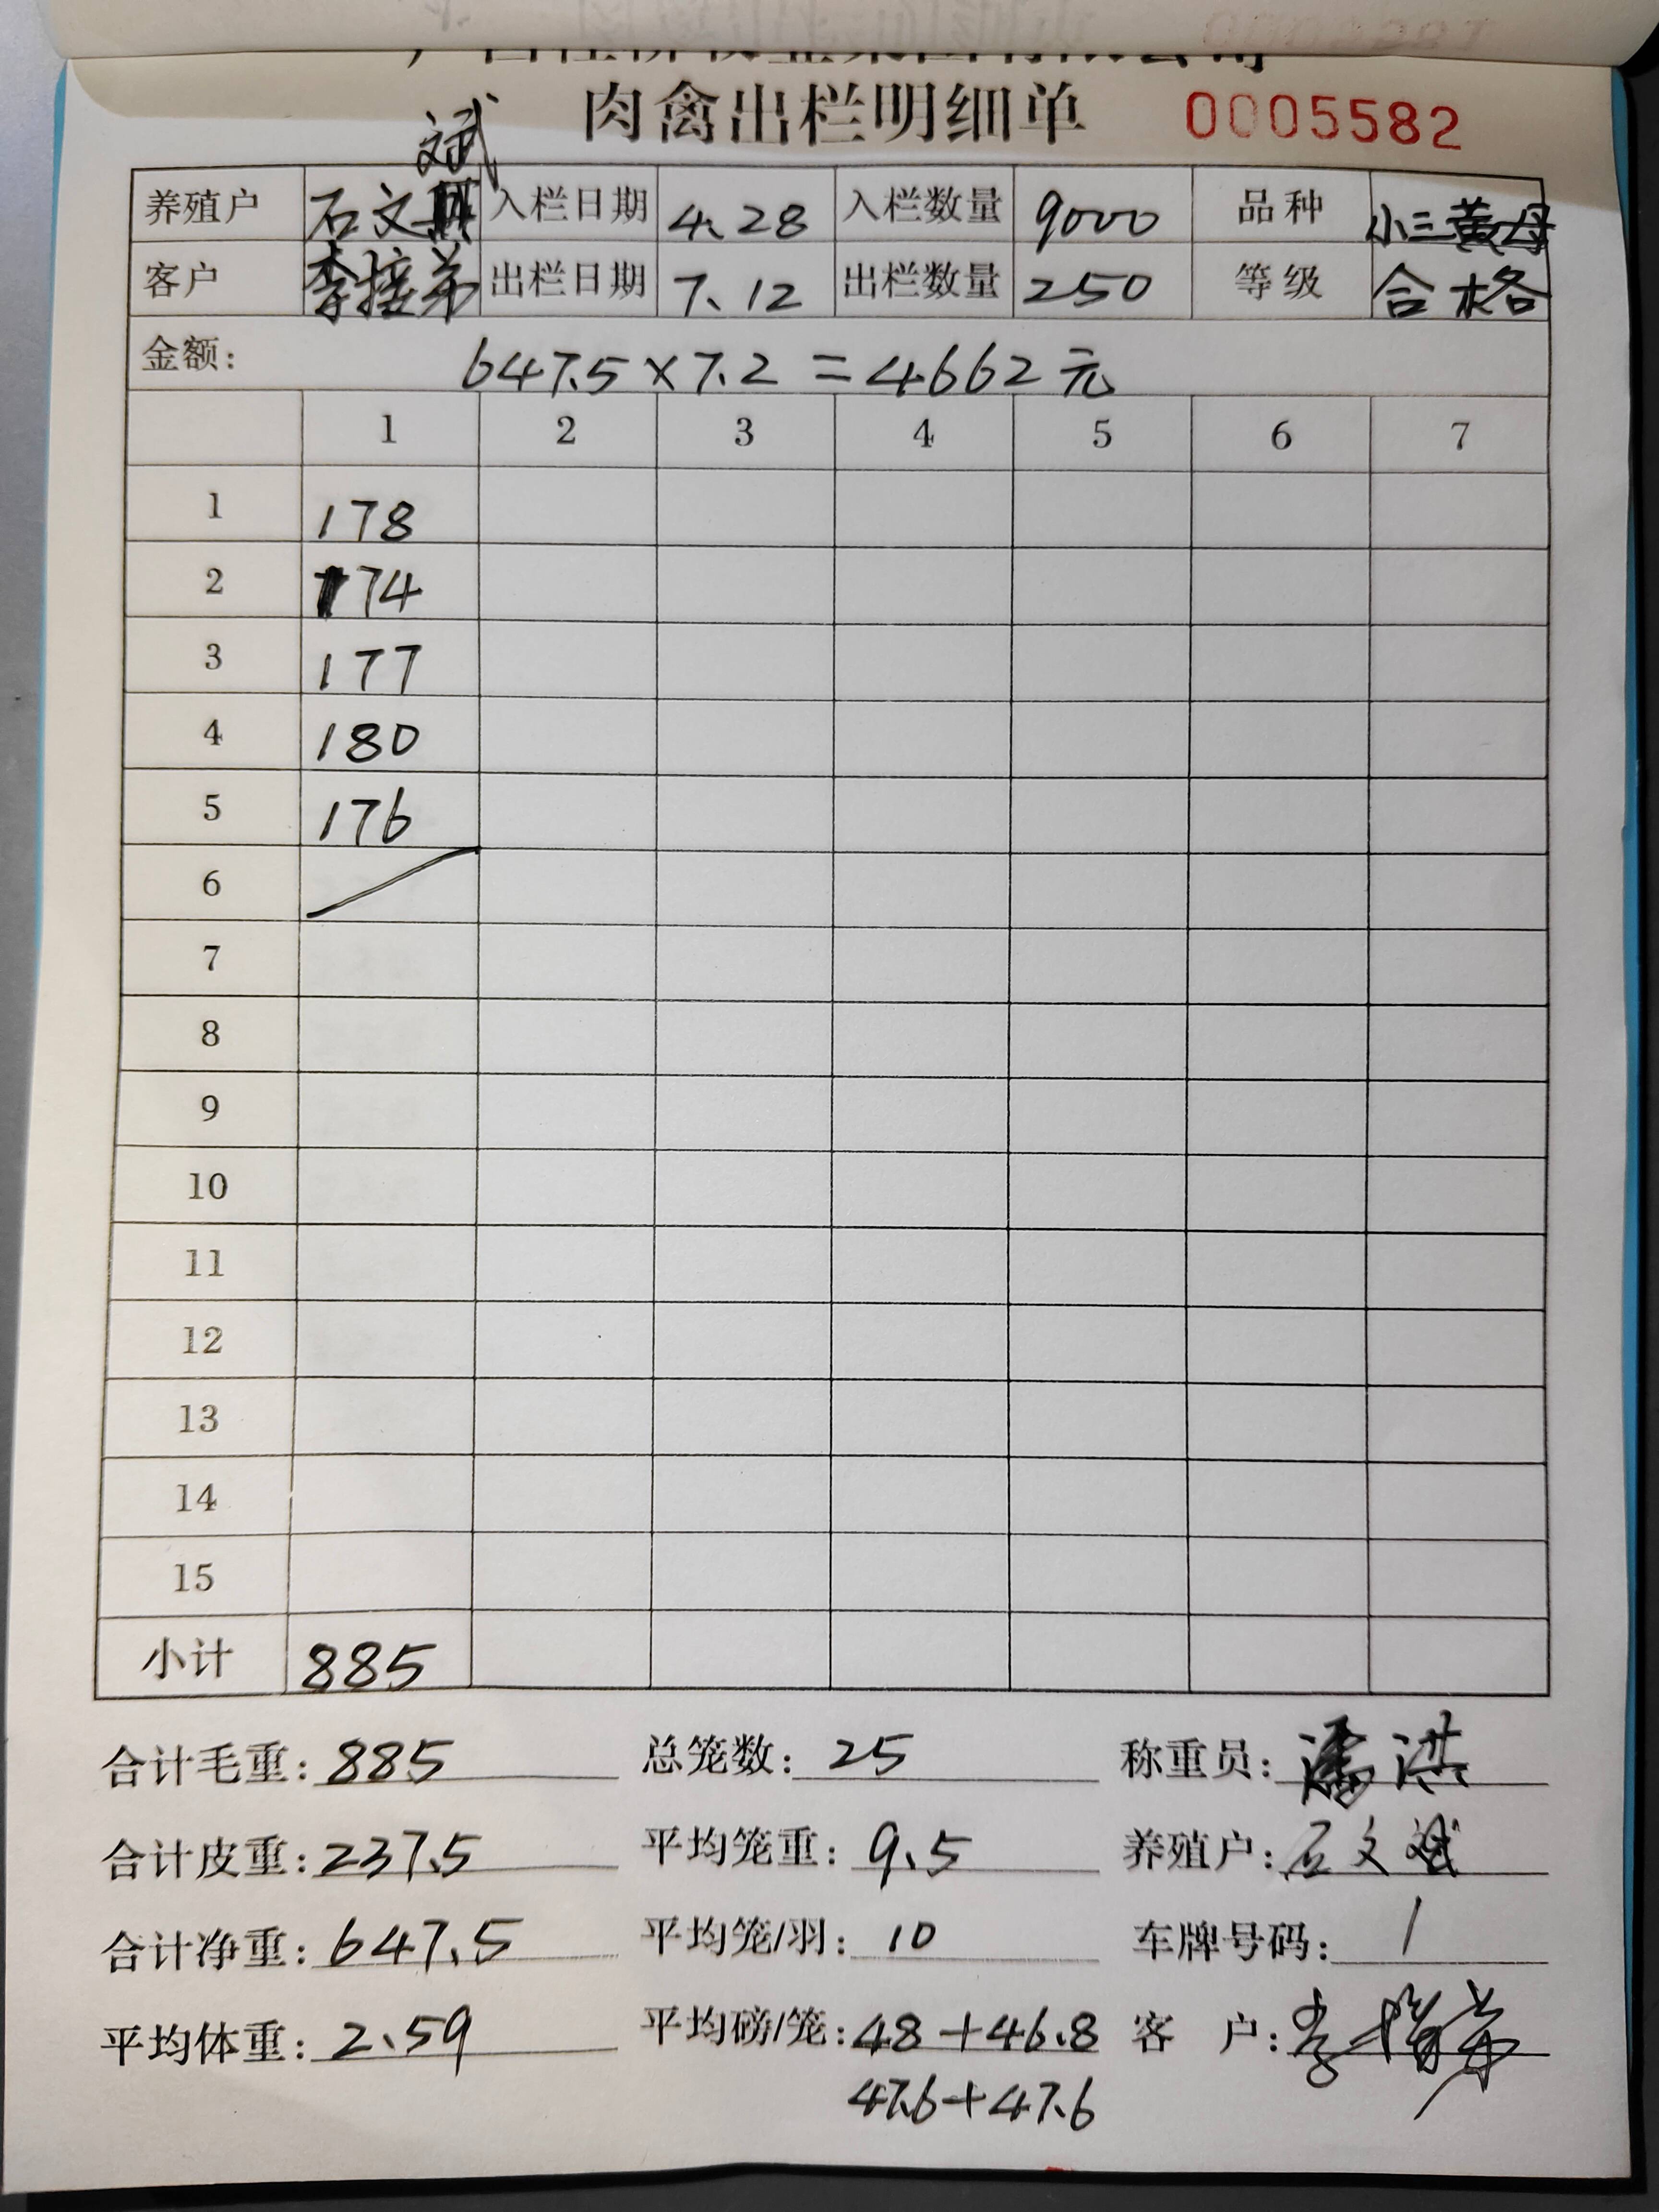 肉禽出栏明细单 0005582
文斌
养殖户 石文 入栏日期 4.28 入栏数量 9000 品种 小三黄母
客户 李接弟 出栏日期 7.12 出栏数量 250 等级 合格
金额: 647.5×7.2=4662元
1 2 3 4 5 6 7
1 178
2 174
3 177
4 180
5 176
6
7
8
9
10
11
12
13
14
15
小计 885
合计毛重: 885 总笼数: 25 称重员: 潘洪
合计皮重: 237.5 平均笼重: 9.5 养殖户: 石文斌
合计净重: 647.5 平均笼/羽: 10 车牌号码: /
平均体重: 2.59 平均磅/笼: 48+46.8 客户: 李接弟
47.6+47.6